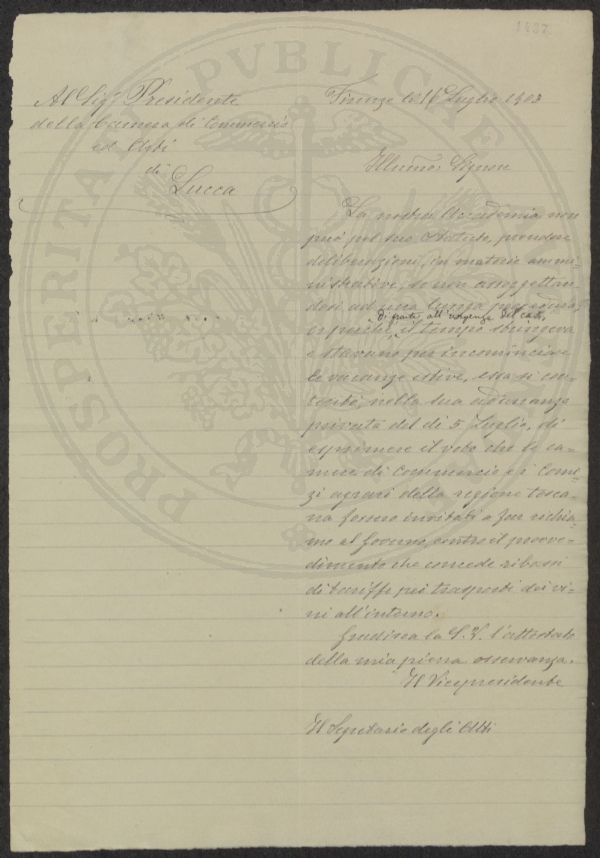 1487
Al Sig. Presidente
della Camera di Commercio
ed Arti
di
Lucca
Firenze li 16 Luglio 1903
Illumo. Signore
La nostra Accademia non
può pel suo Statuto, prendere
deliberazioni, in materie ammi-
nistrative, se non assoggettan-
dosi ad una lunga procedura,
e perché, di fronte all'urgenza del caso,
il tempo stringeva
e stavano per incominciare
le vacanze estive, essa si con-
tentò, nella sua adunanza
privata del dì 5 Luglio, di
esprimere il voto che le Ca-
mere di Commercio e i Comi-
zi agrari della regione tosca-
na fossero invitati a far richia-
mo al Governo contro il provve-
dimento che concede ribassi
di tariffe pei trasporti dei vi-
ni all'interno.
Gradisca la S. V. l'attestato
della mia piena osservanza.
Il Vicepresidente
Il Segretario degli Atti
PROSPERITATI PVBLICAE